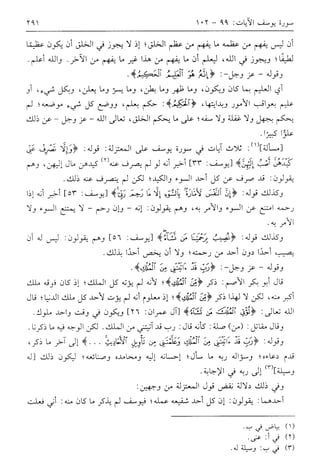 سورة يوسف الآيات: ٩٩ - ١٠٢ ٢٩١
أن ليس يفهم من عظمه ما يفهم من عظم الخلق؛ إذ لا يجوز في الخلق أن يكون عظيمًا
لطيفًا؛ ويجوز في الله، ليعلم أن ما يفهم من هذا غير ما يفهم من الآخر. والله أعلم.
وقوله - عز وجل-: ﴿إِنَّهُ هُوَ الْعَلِيمُ الْحَكِيمُ﴾.
أي العليم بما كان ويكون، وما ظهر وما بطن، وما يسرّ وما يعلن، وبكل شيء، أو
عليم بعواقب الأمور وبداياتها، ﴿الْحَكِيمُ﴾: حكم بعلم، ووضع كل شيء موضعه؛ لم
يحكم بجهل ولا غفلة ولا سفه؛ على ما يحكم الخلق، تعالى الله - عز وجل - عن ذلك
علوًّا كبيرًا.
[مسألة](١): ثلاث آيات في سورة يوسف على المعتزلة: قوله: ﴿وَإِلَّا تَصْرِفْ عَنِّي
كَيْدَهُنَّ أَصْبُ إِلَيْهِنَّ﴾ [يوسف: ٣٣] أخبر أنه لو لم يصرف عنه(٢) كيدهن مال إليهن، وهم
يقولون: قد صرف عن كل أحد السوء والكيد؛ لكن لم يتصرف عنه ذلك.
وكذلك قوله: ﴿إِنَّ النَّفْسَ لَأَمَّارَةٌ بِالسُّوءِ إِلَّا مَا رَحِمَ رَبِّي﴾ [يوسف: ٥٣] أخبر أنه إذا
رحمه امتنع عن السوء والأمر به، وهم يقولون: إنه - وإن رحم - لا يمتنع السوء ولا
الأمر به.
وكذلك قوله: ﴿نُصِيبُ بِرَحْمَتِنَا مَنْ نَشَاءُ﴾ [يوسف: ٥٦] وهم يقولون: ليس له أن
يصيب أحدًا دون أحد من رحمته؛ ولا أن يخص أحدًا بذلك.
وقوله - عز وجل-: ﴿رَبِّ قَدْ آتَيْتَنِي مِنَ الْمُلْكِ﴾.
قال أبو بكر الأصم: ذكر ﴿مِنَ الْمُلْكِ﴾؛ لأنه لم يؤته كل الملك؛ إذ كان فوقه ملك
أكبر منه، لكن لا لهذا ذكر ﴿مِنَ الْمُلْكِ﴾؛ إذ معلوم أنه لم يؤت لأحد كل ملك الدنيا؛ قال
الله تعالى: ﴿تُؤْتِي الْمُلْكَ مَنْ تَشَاءُ﴾ [آل عمران: ٢٦] ويكون في وقت واحد ملوك.
وقال مقاتل: (من) صلة؛ كأنه قال: رب قد آتيتني من الملك. لكن الوجه فيه ما ذكرنا.
وقوله: ﴿رَبِّ قَدْ آتَيْتَنِي مِنَ الْمُلْكِ وَعَلَّمْتَنِي مِنْ تَأْوِيلِ الْأَحَادِيثِ . . .﴾ إلى آخر ما ذكر،
قدم دعاءه؛ وسؤاله ربه ما سأل؛ إحسانه إليه ومحامده وصنائعه؛ ليكون ذلك [له
وسيلة](٣) إلى ربه في الإجابة.
وفي ذلك دلالة نقض قول المعتزلة من وجهين:
أحدهما: يقولون: إن كل أحد شفيعه عمله؛ فيوسف لم يذكر ما كان منه: أني فعلت
(١) بياض في ب.
(٢) في أ: عني.
(٣) في ب: وسيلة له.